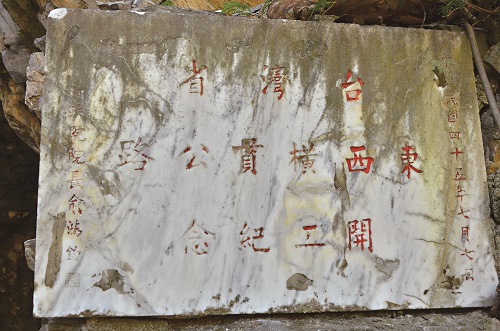 民國四十五年七月七日
台灣省
東西橫貫公路
開工紀念
行政院長俞鴻鈞